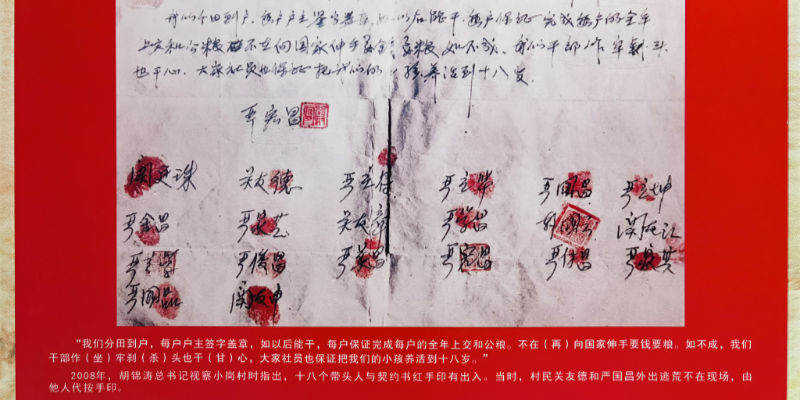 我们分田到户，每户户主签字盖章，如以后能干，每户保证完成每户的全年
上交和公粮，不在向国家伸手要钱要粮。如不成，我们干部作牢刹头
也干心，大家社员也保证把我们的小孩养活到十八岁。
严宏昌
关廷珠 关友德 严立付 严立华 严国昌 严立坤
严金昌 严家芝 关友章 严学昌 韩国云 关友江
严立学 严俊昌 严美昌 严宏昌 严付昌 严家其
严国品 关友申
“我们分田到户，每户户主签字盖章，如以后能干，每户保证完成每户的全年上交和公粮。不在（再）向国家伸手要钱要粮。如不成，我们
干部作（坐）牢刹（杀）头也干（甘）心，大家社员也保证把我们的小孩养活到十八岁。”
2008年，胡锦涛总书记视察小岗村时指出，十八个带头人与契约书红手印有出入。当时，村民关友德和严国昌外出逃荒不在现场，由
他人代按手印。